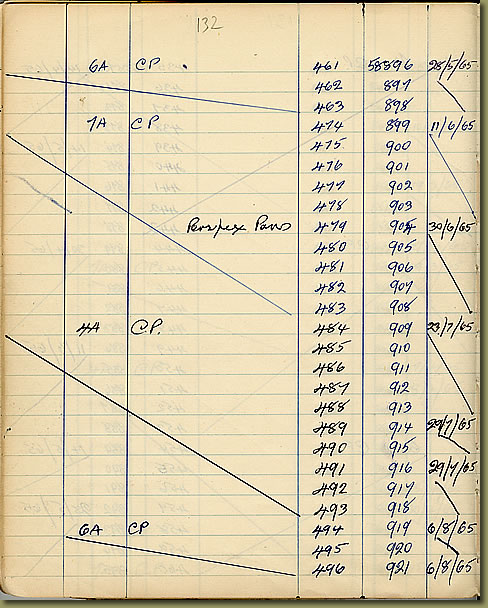 132
6A CP. 461 58896 28/5/65
462 897
463 898
7A CP 474 899 11/6/65
475 900
476 901
477 902
478 903
Perspex Pans 479 904 30/6/65
480 905
481 906
482 907
483 908
4A C.P. 484 909 23/7/65
485 910
486 911
487 912
488 913
489 914 29/7/65
490 915
491 916 29/7/65
492 917
493 918
6A CP 494 919 6/8/65
495 920
496 921 6/8/65